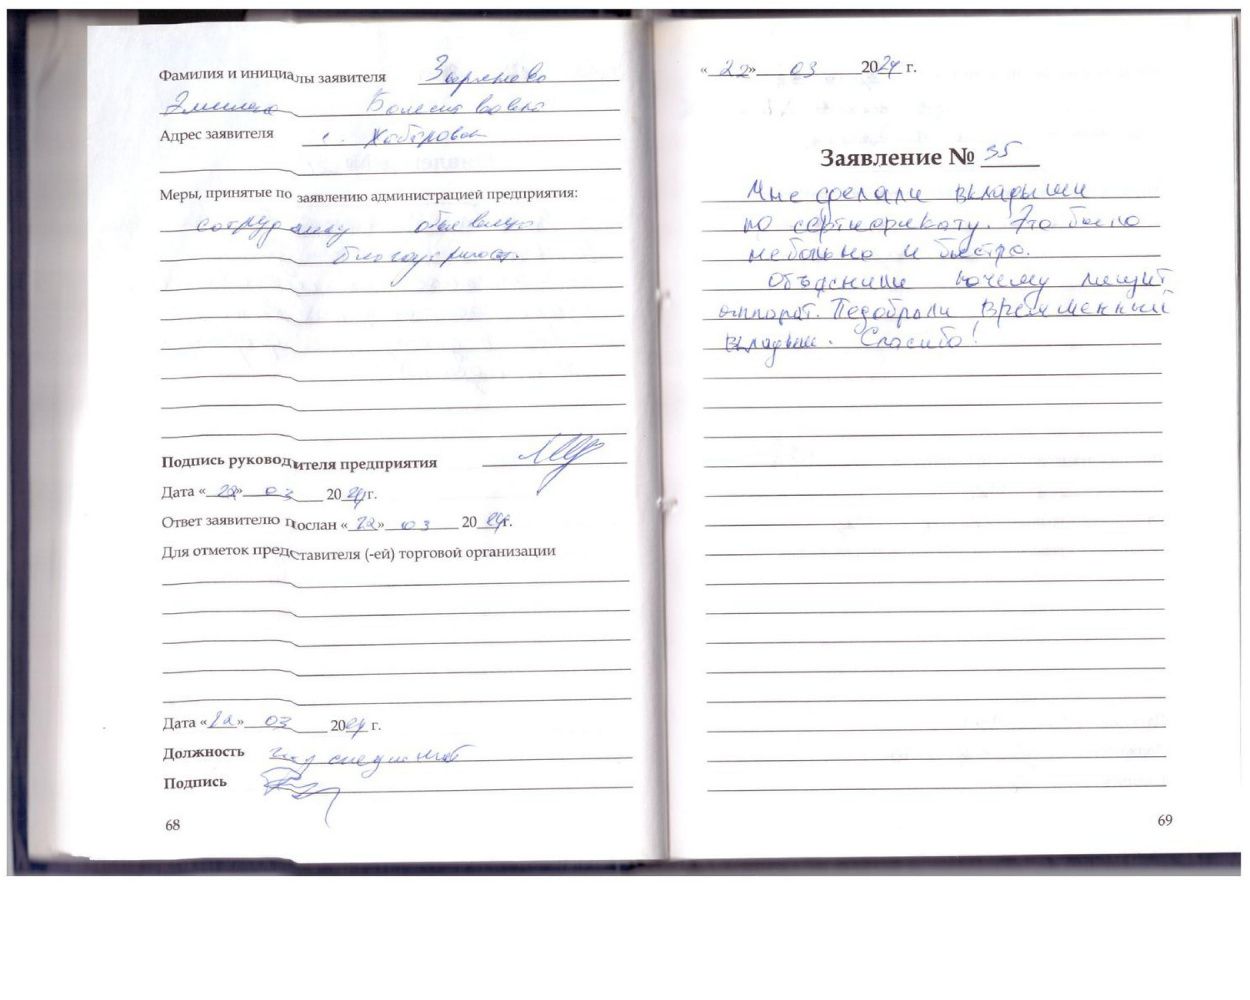 Фамилия и инициалы заявителя Зырянова
Адрес заявителя г. Хабаровск
Меры, принятые по заявлению администрацией предприятия:
сотруднику
Подпись руководителя предприятия
Дата «22» 03 2024 г.
Ответ заявителю послан «22» 03 2024 г.
Для отметок представителя (-ей) торговой организации
Дата «22» 03 2024 г.
Должность
Подпись
68
«22» 03 2024 г.
Заявление № 35
Мне сделали вкладыши
по сертификату. Это было
небольно и быстро.
Объяснили почему пищит
аппарат. Подобрали временный
вкладыш. Спасибо!
69